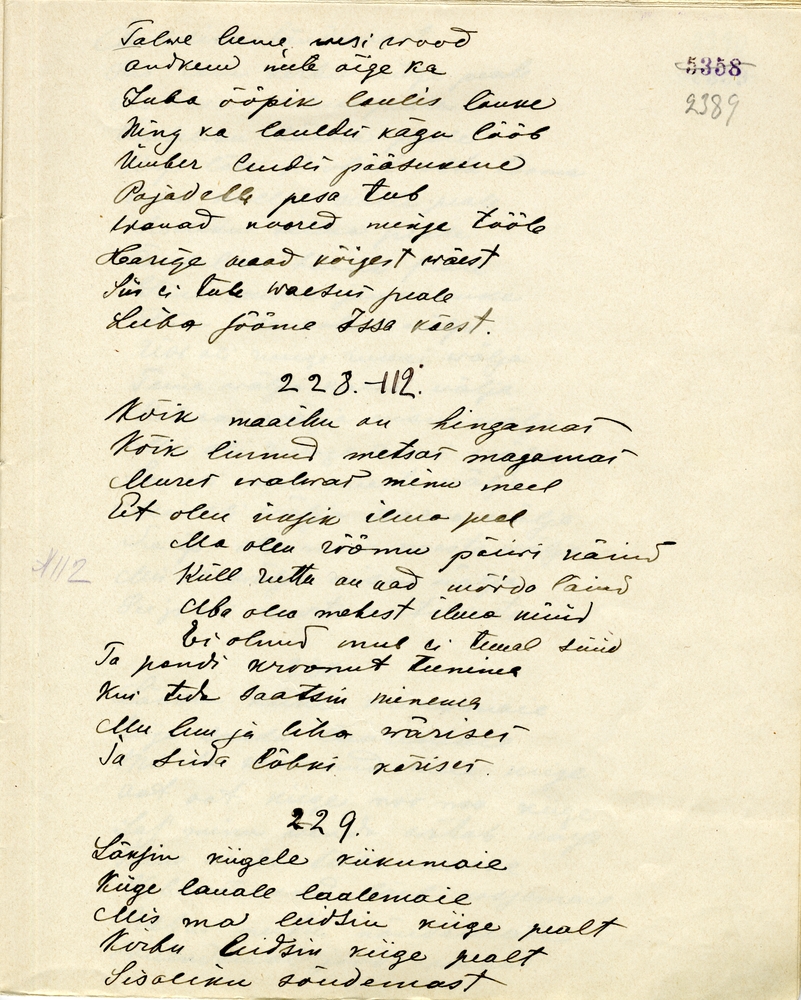 Talwe lume, wesi wood
andkem meile õige ka
5358
2389
Juba ööpik laulis laune
Ning ka lauldis kägu lööb
Ümber lendis pääsukene
Pajadelle pesa teeb
wanad noored minge tööle
Harige maad kõigest wäest
Siis ei tule waesus peale
Leiba sööme Issa käest.
228. 112.
Kõik maailm on hingamas
Kõik linnud metsas magamas
Mures walwas minu meel
Et olen üksik ilma peal
Ma olen rõõmu päiwi näind
Küll ruttu on nad mööda läind
Aba olen mehest ilma nüüd
Ei olnud mul ei temal süüd
112
Ta pandi kroonut teenima
Kui teda saatsin minema
Mu luu ja liha wärises
Ja süda lõhki kärises.
229.
Läksin kiigele kiikumaie
Kiige lauale laulemaie
Mis ma leidsin kiige pealt
Kõrbu leidsin kiige pealt
Sisaliku sõudemast